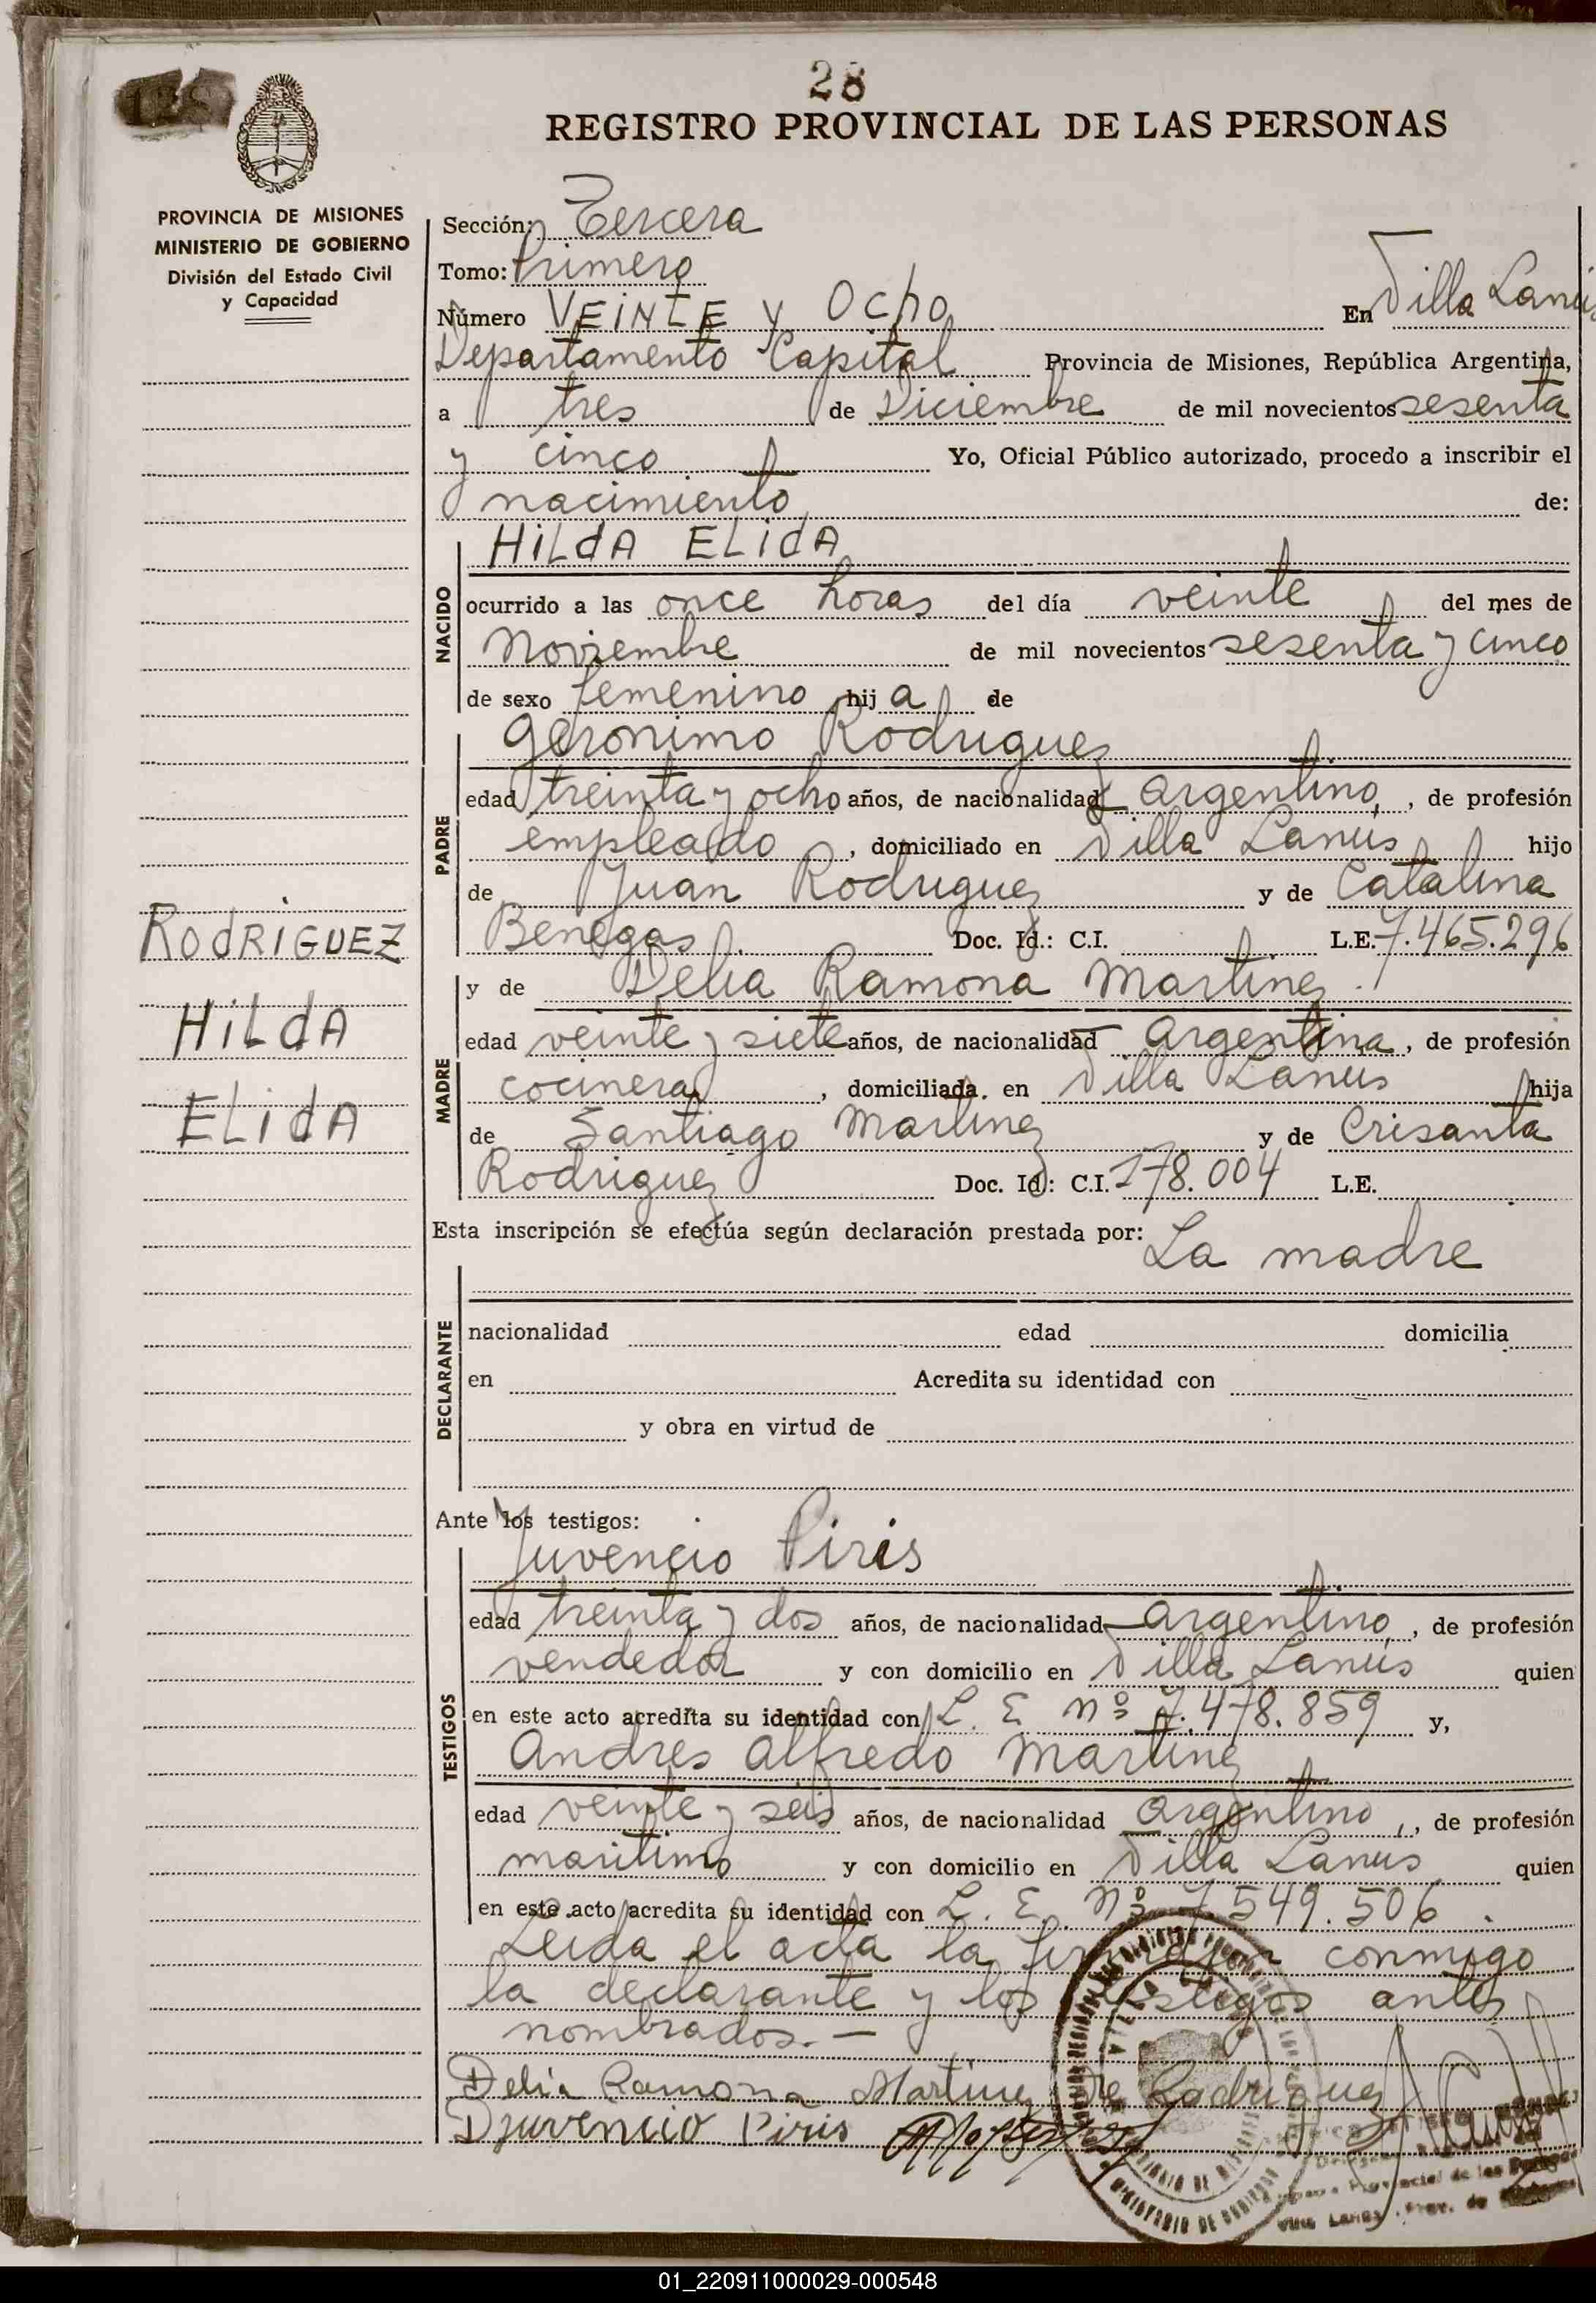 28
REGISTRO PROVINCIAL DE LAS PERSONAS
PROVINCIA DE MISIONES
MINISTERIO DE GOBIERNO
División del Estado Civil
y Capacidad
Sección: Tercera
Tomo: Primero
Número VEINTE y Ocho En Villa Lanús
Departamento Capital Provincia de Misiones, República Argentina,
a tres de Diciembre de mil novecientos sesenta
y cinco Yo, Oficial Público autorizado, procedo a inscribir el
nacimiento de:
HILdA ELidA
NACIDO
ocurrido a las once horas del día veinte del mes de
Noviembre de mil novecientos sesenta y cinco
de sexo femenino hija de
Geronimo Rodriguez
PADRE
edad treinta y ocho años, de nacionalidad argentino, de profesión
empleado, domiciliado en Villa Lanus hijo
de Juan Rodriguez y de Catalina
Benegas Doc. Id.: C.I. L.E. 7.465.296
RodRIGUEZ
HiLdA
ELidA
y de Delia Ramona Martinez
MADRE
edad veinte y siete años, de nacionalidad argentina, de profesión
cocinera, domiciliada. en Villa Lanus hija
de Santiago Martinez y de Crisanta
Rodriguez Doc. Id: C.I. 178.004 L.E.
Esta inscripción se efectúa según declaración prestada por: La madre
DECLARANTE
nacionalidad edad domicilia
en Acredita su identidad con
y obra en virtud de
Ante los testigos:
Juvencio Piris
TESTIGOS
edad treinta y dos años, de nacionalidad argentino, de profesión
vendedor y con domicilio en Villa Lanus quien
en este acto acredita su identidad con L. E. Nº 7.478.859 y,
Andres Alfredo Martinez
edad veinte y seis años, de nacionalidad argentino, de profesión
maritimo y con domicilio en Villa Lanus quien
en este acto acredita su identidad con L. E. Nº 7.549.506.
Leida el acta la firman conmigo
la declarante y los testigos antes
nombrados.—
Delia Ramona Martinez De Rodriguez
Juvencio Piris
01_220911000029-000548